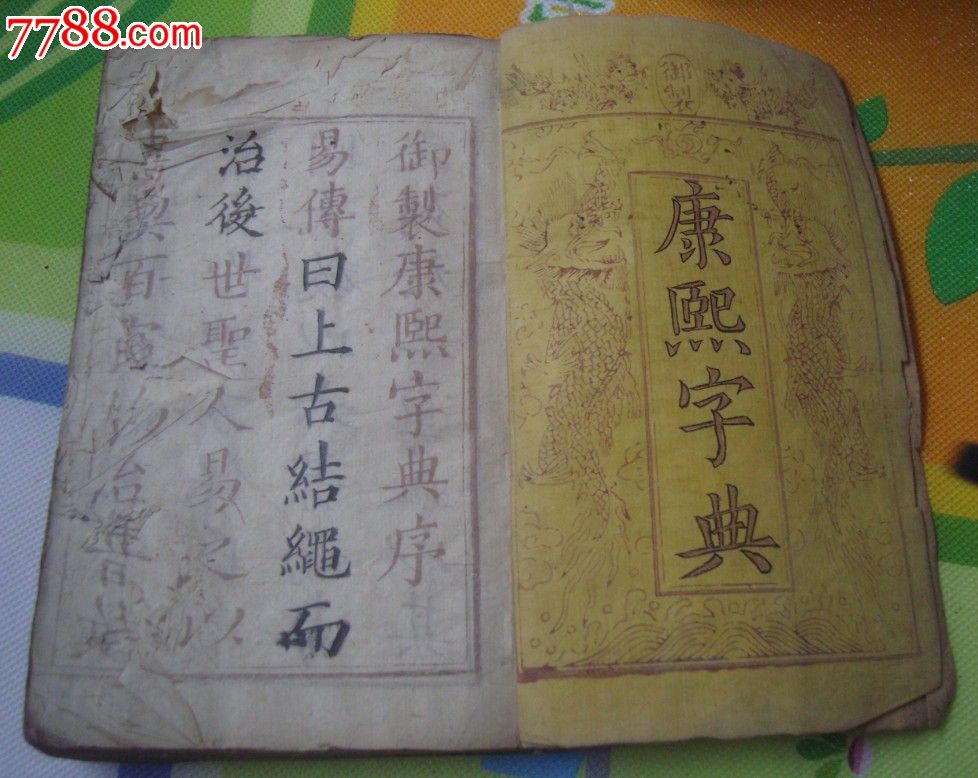 7788.com
御製
康熙字典
御製康熙字典序
易傳曰上古結繩而
治後世聖人易之以
書契百官